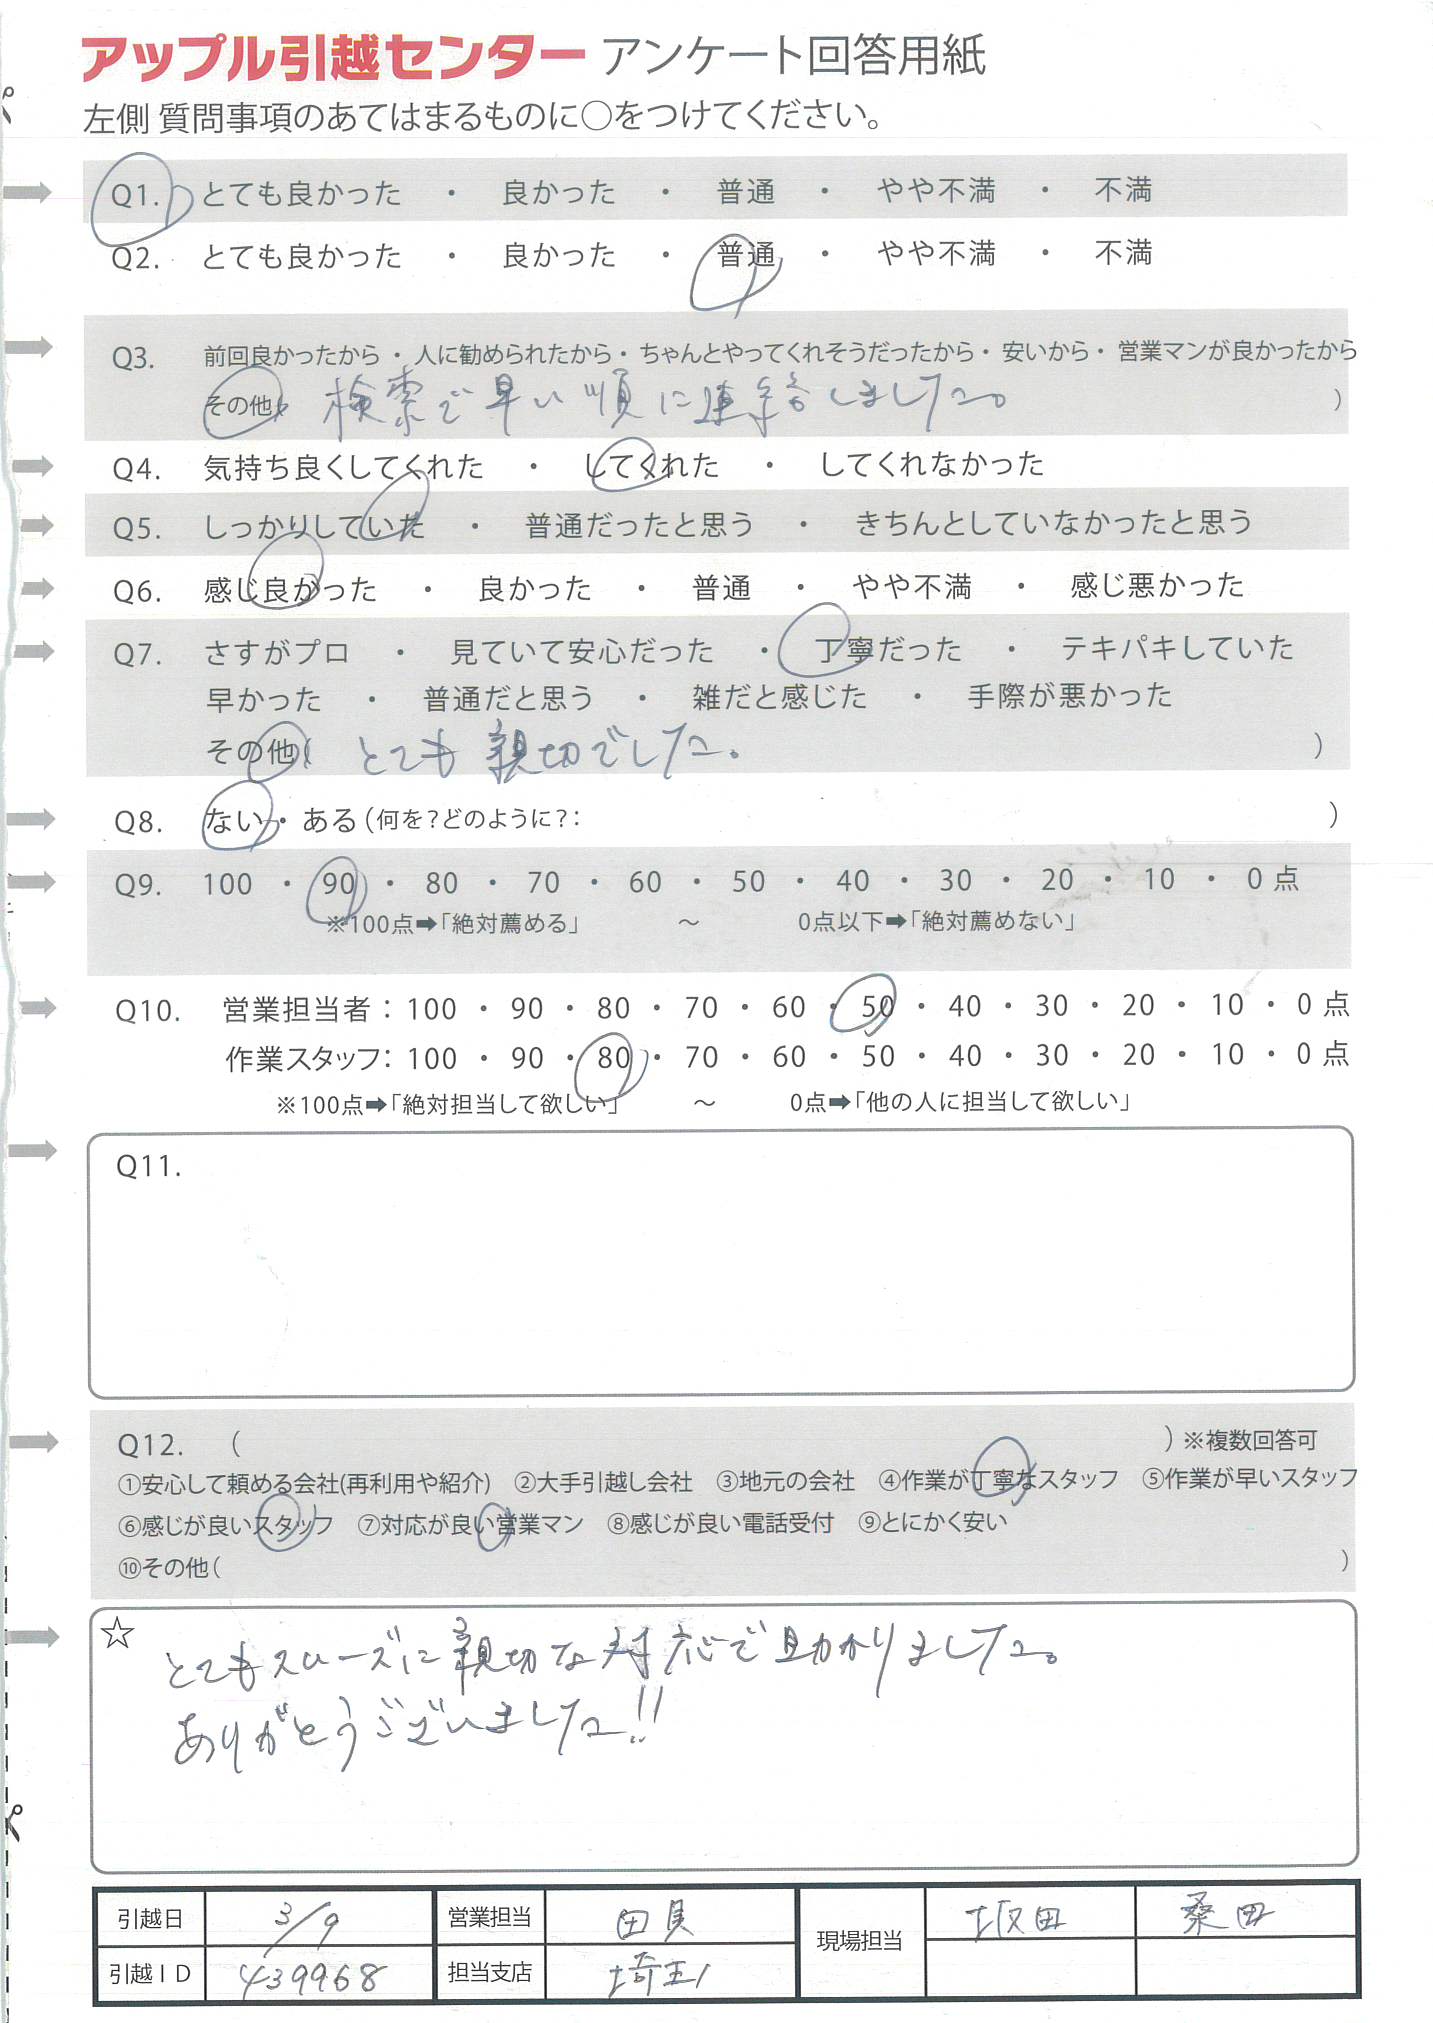 アップル引越センター アンケート回答用紙
左側 質問事項のあてはまるものに○をつけてください。
Q1. とても良かった ・ 良かった ・ 普通 ・ やや不満 ・ 不満
Q2. とても良かった ・ 良かった ・ 普通 ・ やや不満 ・ 不満
Q3. 前回良かったから ・ 人に勧められたから ・ ちゃんとやってくれそうだったから ・ 安いから ・ 営業マンが良かったから
その他( 検索で早い順に連絡しました。 )
Q4. 気持ち良くしてくれた ・ してくれた ・ してくれなかった
Q5. しっかりしていた ・ 普通だったと思う ・ きちんとしていなかったと思う
Q6. 感じ良かった ・ 良かった ・ 普通 ・ やや不満 ・ 感じ悪かった
Q7. さすがプロ ・ 見ていて安心だった ・ 丁寧だった ・ テキパキしていた
早かった ・ 普通だと思う ・ 雑だと感じた ・ 手際が悪かった
その他( とても親切でした。 )
Q8. ない ・ ある (何を?どのように?: )
Q9. 100 ・ 90 ・ 80 ・ 70 ・ 60 ・ 50 ・ 40 ・ 30 ・ 20 ・ 10 ・ 0 点
※100点➡「絶対薦める」 ～ 0点以下➡「絶対薦めない」
Q10. 営業担当者 : 100 ・ 90 ・ 80 ・ 70 ・ 60 ・ 50 ・ 40 ・ 30 ・ 20 ・ 10 ・ 0 点
作業スタッフ : 100 ・ 90 ・ 80 ・ 70 ・ 60 ・ 50 ・ 40 ・ 30 ・ 20 ・ 10 ・ 0 点
※100点➡「絶対担当して欲しい」 ～ 0点➡「他の人に担当して欲しい」
Q11.
Q12. ( ) ※複数回答可
①安心して頼める会社(再利用や紹介) ②大手引越し会社 ③地元の会社 ④作業が丁寧なスタッフ ⑤作業が早いスタッフ
⑥感じが良いスタッフ ⑦対応が良い営業マン ⑧感じが良い電話受付 ⑨とにかく安い
⑩その他( )
☆ とてもスムーズに親切な対応で助かりました。
ありがとうございました!!
引越日 3/9 営業担当 田貝 現場担当 坂田 桑田
引越ID 439968 担当支店 埼玉